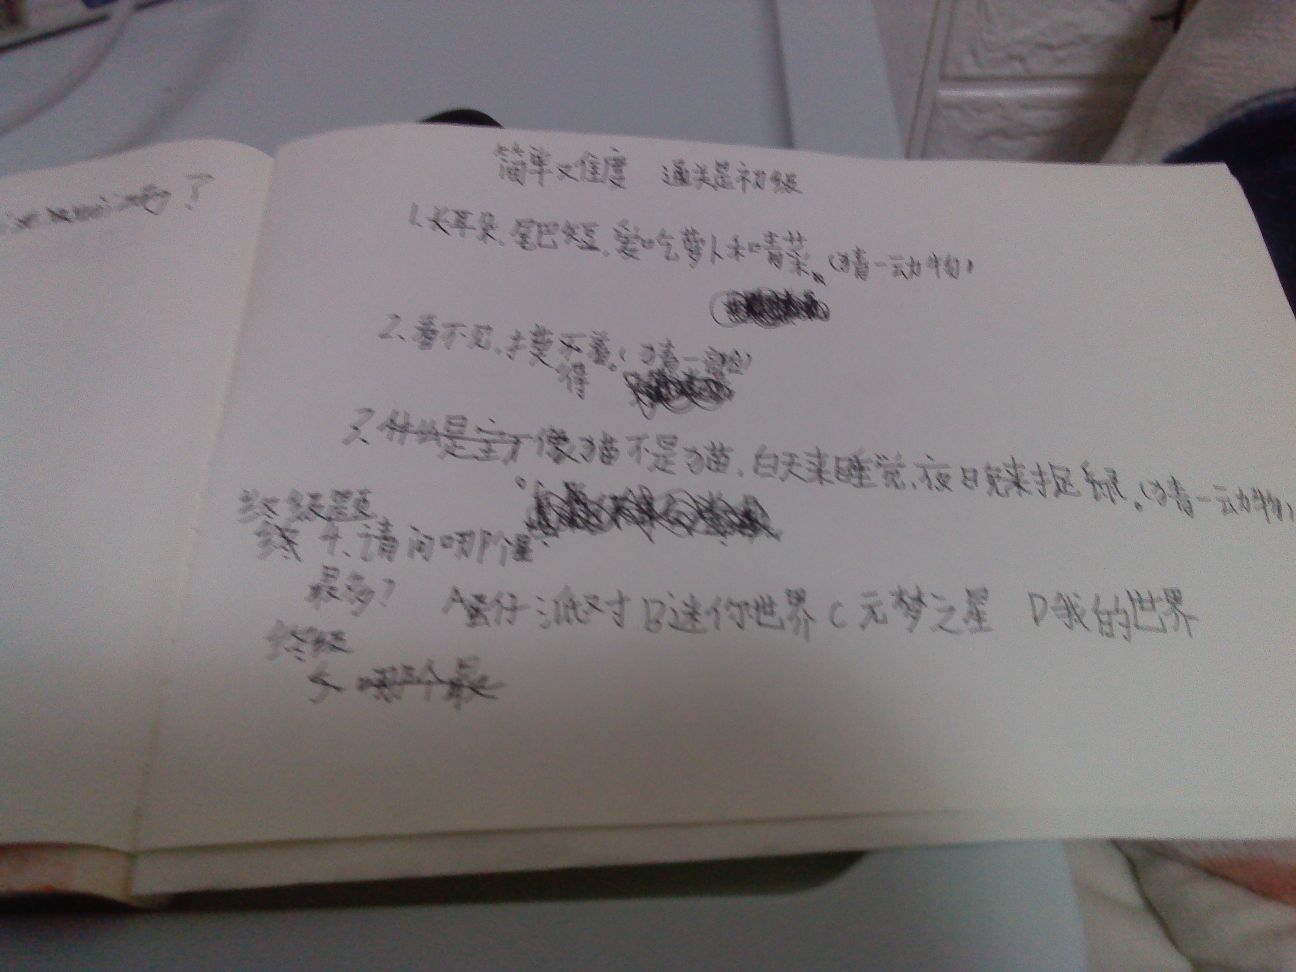 简单又难度 通关是初级
1.长耳朵,尾巴短,爱吃萝卜和青菜。(猜一动物)
2.看不见,摸不着。(猜一
得
3.什么是主了像猫不是猫,白天来睡觉,夜晚来捉。(猜一动物)
终级题
4.请问哪个
最多?
A蛋仔派对 B迷你世界 C元梦之星 D我的世界
终级
5.哪个最